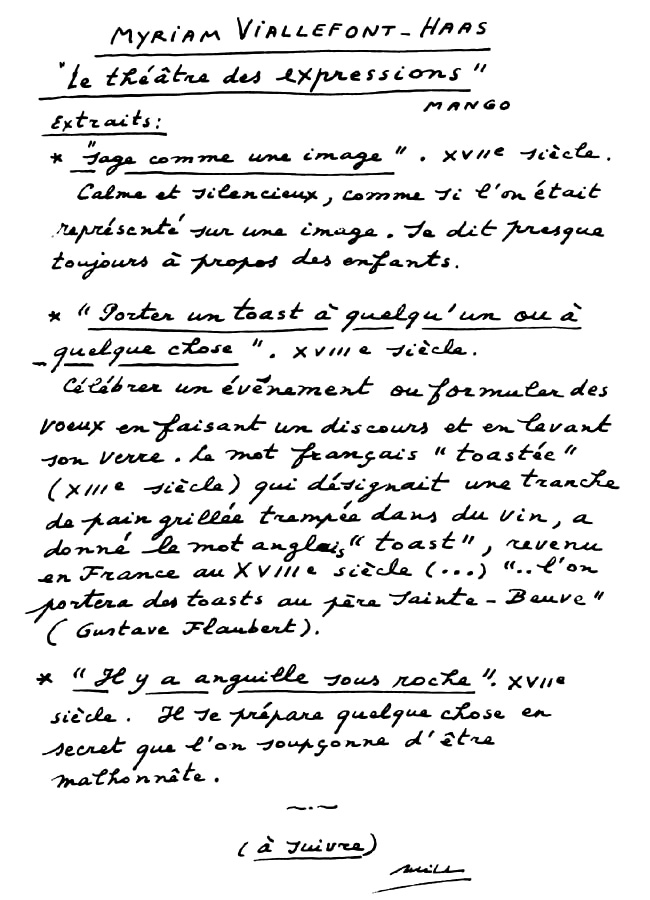 MYRIAM VIALLEFONT-HAAS
"Le théâtre des expressions"
MANGO
Extraits:
* "Sage comme une image". XVIIe siècle.
Calme et silencieux, comme si l'on était
représenté sur une image. Se dit presque
toujours à propos des enfants.
* "Porter un toast à quelqu'un ou à
quelque chose". XVIIIe siècle.
Célébrer un événement ou formuler des
voeux en faisant un discours et en levant
son verre. Le mot français "toastée"
(XIIIe siècle) qui désignait une tranche
de pain grillée trempée dans du vin, a
donné le mot anglais "toast", revenu
en France au XVIIIe siècle (...) "..l'on
portera des toasts au père Sainte-Beuve"
(Gustave Flaubert).
* "Il y a anguille sous roche". XVIIe
siècle. Il se prépare quelque chose en
secret que l'on soupçonne d'être
malhonnête.
(à suivre)